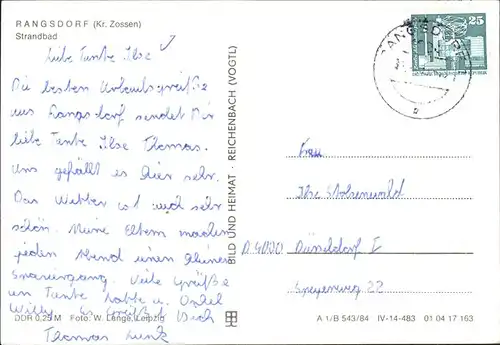 RANGSDORF (Kr. Zossen)
Strandbad
Liebe Tante Ilse
Die besten Urlaubsgrüße
aus Rangsdorf sendet Dir
liebe Tante Ilse Thomas.
Uns gefällt es hier sehr.
Das Wetter ist auch sehr
schön. Meine Eltern machen
jeden Abend einen kleinen
Spaziergang. Viele Grüße
an Tante u. Onkel
Willy es grüßt Dich
Thomas
DDR 0,25 M Foto: W. Lange, Leipzig
BILD UND HEIMAT · REICHENBACH (VOGTL)
25
RANGSDORF
Frau
Ilse Stolzenwald
D 4000 Düsseldorf 1
Speyerweg 22
A 1/B 543/84 IV-14-483 01 04 17 163